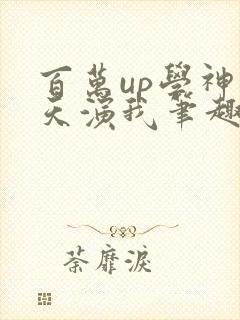 百萬up學神
天演我筆趣
荼靡淚